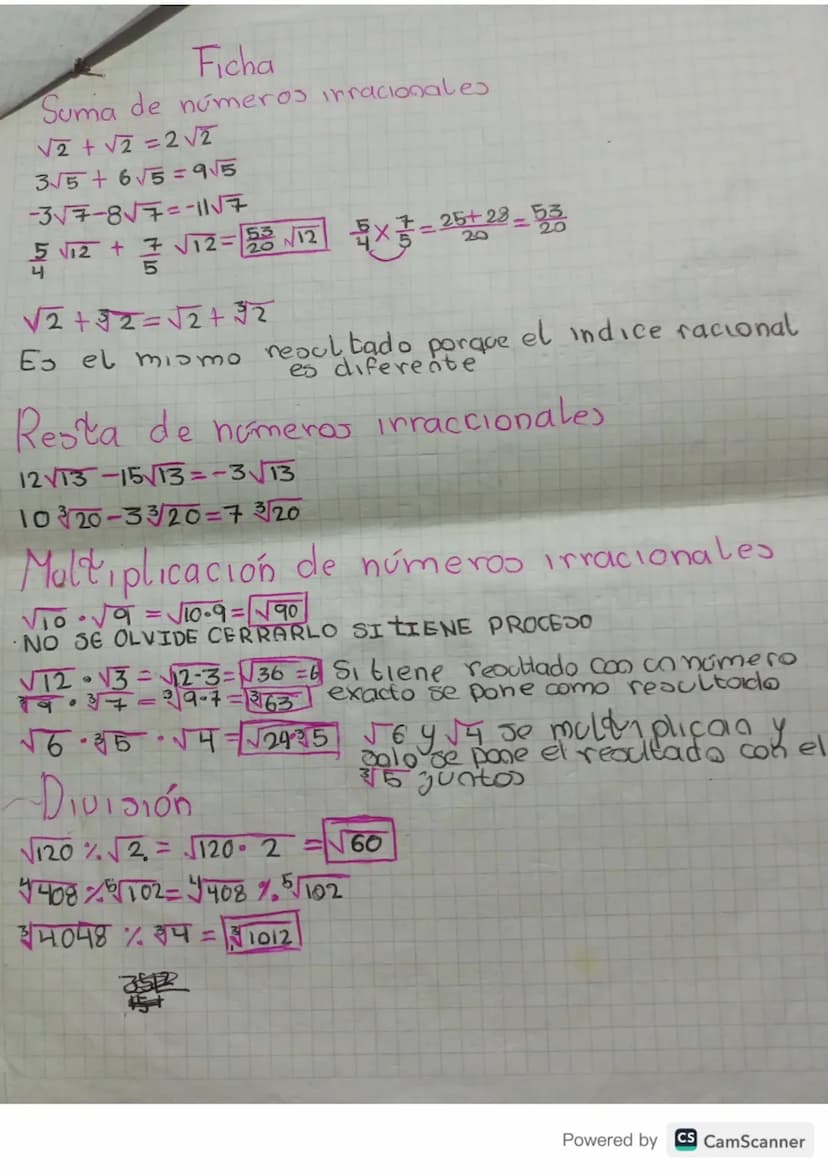 Ficha
Suma de números irracionales
√2 + √2 = 2√2
3√5 + 6√5 = 9√5
-3√7-8√7=-11√7
5/4 √12 + 7/5 √12= 53/20 √12   5/4 × 7/5 = 25+28/20 = 53/20
√2 + ∛2 = √2 + ∛2
Es el mismo resultado porque el indice racional
es diferente
Resta de números irraccionales
12√13 -15√13 = -3√13
10∛20-3∛20=7 ∛20
Multiplicación de números irracionales
√10 · √9 = √10·9 = √90
·NO SE OLVIDE CERRARLO SI tIENE PROCESO
√12 · √3 = √12·3 = √36 =6 Si tiene resultado con un número
∛9 · ∛7 = ∛9·7 = ∛63 exacto se pone como resultado
√6 · ∛5 · √4 = √24·∛5 √6 y √4 se multiplican y
solo se pone el resultado con el
∛5 juntos
División
√120 % √2 = √120· 2 = √60
∜408 % ⁵√102= ∜408 % ⁵√102
∛4048 % ∛4 = ∛1012
Powered by CS CamScanner